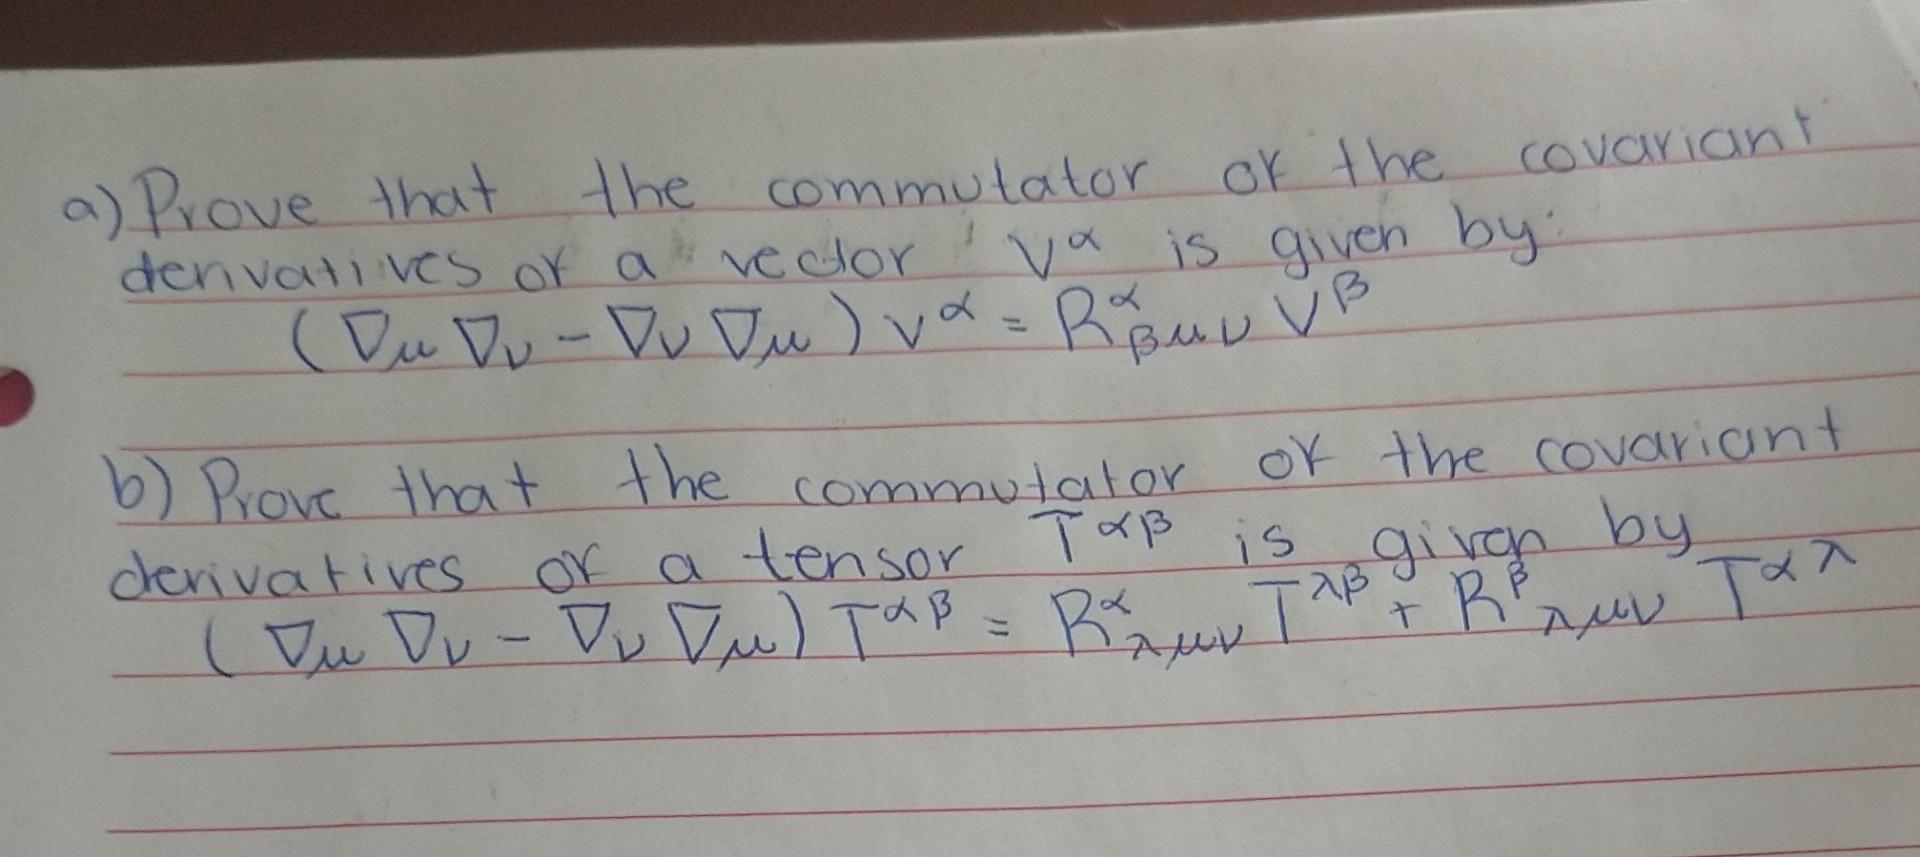 a) Prove that the commutator of the covariant
derivatives of a vector V^α is given by:
(∇μ ∇ν - ∇ν ∇μ) V^α = R^α_βμν V^β
b) Prove that the commutator of the covariant
derivatives of a tensor T^αβ is given by
(∇μ ∇ν - ∇ν ∇μ) T^αβ = R^α_λμν T^λβ + R^β_λμν T^αλ